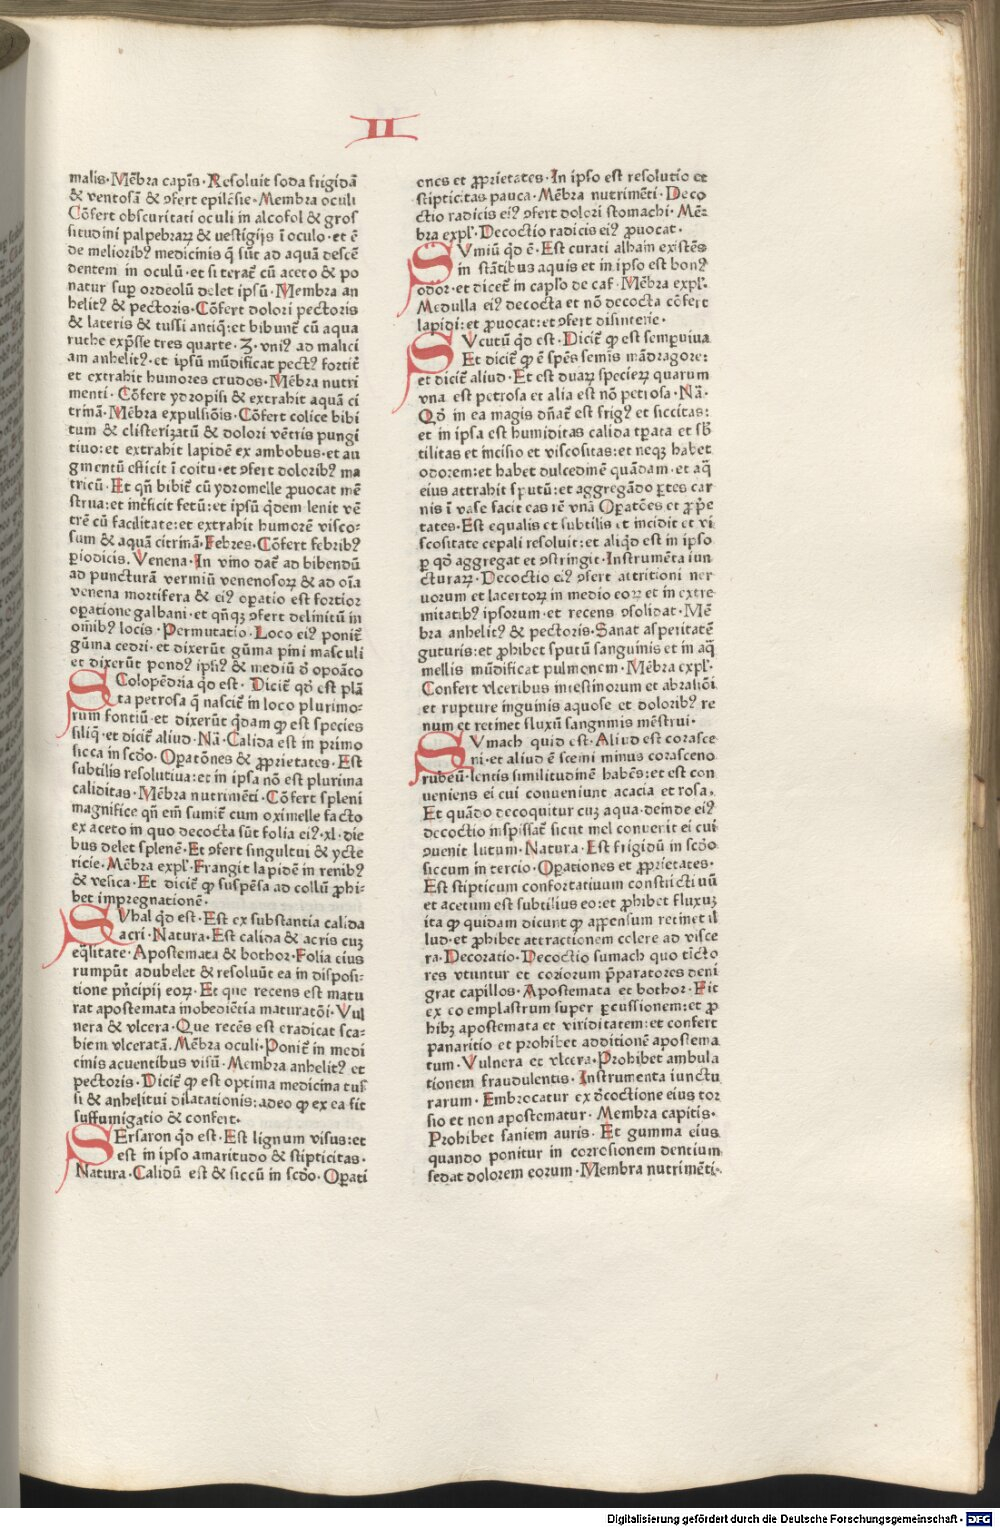 II
malis·Mẽbra capĩs·Resoluit soda frigidã
& ventosã & ɔfert epilẽsie·Membra oculi
Cõfert obscuritati oculi in alcofol & gros
situdini palpebraꝝ & vestigijs ĩ oculo·et ẽ
de melioribꝰ medicinis q̃ sũt ad aquã descẽ
dentem in oculũ·et si terat̃ cũ aceto & po
natur suꝑ ordeolũ delet ipsũ·Membra an
helitꝰ & pectoris·Cõfert dolori pectoris
& lateris & tussi antiq̃:et bibunt̃ cũ aqua
ruthe exp̃sse tres quarte·ʒ·vniꝰ ad malici
am anhelitꝰ·et ipsũ mũdificat pectꝰ fortit̃
et extrahit humores crudos·Mẽbra nutri
menti·Cõfert ydropisi & extrahit aquã ci
trinã·Mẽbra expulsiõis·Cõfert colice bibi
tum & clisterizatũ & dolori vẽtris pungi
tiuo:et extrahit lapidẽ ex ambobus·et au
gmentũ efficit ĩ coitu·et ɔfert doloribꝰ ma
tricũ·Et qñ bibit̃ cũ ydromelle ꝓuocat mẽ
strua:et int̃ficit fetũ:et ipsũ q̃dem lenit vẽ
trẽ cũ facilitate:et extrahit humorẽ visco-
sum & aquã citrinã·Febres·Cõfert febribꝰ
ꝑiodicis·Venena·In vino dat̃ ad bibendũ
ad puncturã vermiũ venenosoꝝ & ad oĩa
venena mortifera & eiꝰ oꝑatio est fortior
oꝑatione galbani·et qñqꝫ ɔfert delinitũ in
oñibꝰ locis·Permutatio·Loco eiꝰ ponit̃
gũma cedri·et dixerũt gũma pini masculi
et dixerũt pondꝰ ipsiꝰ & mediũ ð opoãco
SColopẽdria q̃d est·Dicit̃ qð est plã
ta petrosa q̃ nascit̃ in loco plurimo-
rum fontiũ·et dixerũt q̃dam ꝙ est species
siliq̃·et dicit̃ aliud·Nã·Calida est in primo
sicca in scðo·Oꝑatõnes & ꝓprietates·Est
subtilis resolutiua:et in ipsa nõ est plurima
caliditas·Mẽbra nutrimẽti·Cõfert spleni
magnifice qñ em̃ sumit̃ cum oximelle facto
ex aceto in quo decocta sũt folia eiꝰ·xl·die
bus delet splenẽ·Et ɔfert singultui & ycte
ricie·Mẽbra explꝰ·Frangit lapidẽ in renibꝰ
& vesica·Et dicit̃ ꝙ suspẽsa ad collũ ꝓhi-
bet impregnationẽ·
SVhal q̃d est·Est ex substantia calida
acri·Natura·Est calida & acris cuꝫ
eq̃litate·Apostemata & bothor·Folia eius
rumpũt adubelet & resoluũt ea in disposi-
tione pñcipij eoꝝ·Et que recens est matu
rat apostemata inobediẽtia maturatõi·Vul
nera & vlcera·Que recẽs est eradicat sca-
biem vlceratã·Mẽbra oculi·Ponit̃ in medi
cinis acuentibus visũ·Membra anhelitꝰ et
pectoris·Dicit̃ ꝙ est optima medicina tus
si & anhelitui dilatationis:adeo ꝙ ex ea fit
suffumigatio & confert·
SErsaron q̃d est·Est lignum visus:et
est in ipso amaritudo & stipticitas·
Natura·Calidũ est & siccũ in scðo·Oꝑati
ones et ꝓprietates·In ipso est resolutio et
stipticitas pauca·Mẽbra nutrimẽti·Deco
ctio radicis eiꝰ ɔfert dolori stomachi·Mẽ-
bra explꝰ·Decoctio radicis eiꝰ ꝓuocat·
SVmiũ qð ẽ·Est curati alham existẽs
in stãtibus aquis et in ipso est bonꝰ
odor·et dicet̃ in capło de caf·Mẽbra explꝰ·
Medulla eiꝰ decocta et nõ decocta cõfert
lapidi:et ꝓuocat:et ɔfert disinterie·
SVcutũ q̃d est·Dicit̃ ꝙ est semꝑuiua
Et dicit̃ ꝙ ẽ spẽs semis mãdragore:
et dicit̃ aliud·Et est duaꝝ specieꝝ quarum
vna est petrosa et alia est nõ petrosa·Nã·
Qð in ea magis dñat̃ est frigꝰ et siccitas:
et in ipsa est humiditas calida tꝑata et sb̃
tilitas et incisio et viscositas:et neqꝫ habet
odorem:et habet dulcedinẽ quãdam·et aq̃
eius attrahit sputũ:et aggregãdo ꝑtes car
nis ĩ vase facit eas rẽ vnã Oꝑatões et ꝓp̃e
tates·Est equalis et subtilis et incidit et vi
scositate cepali resoluit:et aliq̃d est in ipso
ꝑ qð aggregat et ɔstringit·Instrumẽta iun
cturaꝝ·Decoctio eiꝰ ɔfert attritioni ner
uorum et lacertoꝝ in medio eoꝝ et in extre
mitatibꝰ ipsorum·et recens ɔsolidat·Mẽ
bra anhelitꝰ & pectoris·Sanat asperitatẽ
guturis:et ꝓhibet sputũ sanguinis et in aq̃
mellis mũdificat pulmonem·Mẽbra explꝰ·
Confert vlceribus intestinorum et abrasiõi
et rupture inguinis aquose et doloribꝰ re
num et retinet fluxũ sanguinis mẽstrui·
SVmach quid est·Aliud est corasce
ni·et aliud ẽ sceini minus corasceno
rubeũ·lentis similitudinẽ habẽs:et est con
ueniens ei cui conueniunt acacia et rosa·
Et quãdo decoquitur cuꝫ aqua·deinde eiꝰ
decoctio inspissat̃ sicut mel conuenit ei cui
ɔuenit lutum·Natura·Est frigidũ in scðo
siccum in tercio·Oꝑationes et ꝓprietates·
Est stipticum confortatiuum constrictiuũ
et acetum est subtilius eo:et ꝓhibet fluxuꝫ
ita ꝙ quidam dicunt ꝙ appensum retinet il
lud·et ꝓhibet attractionem colere ad visce
ra·Decoratio·Decoctio sumach quo tincto
res vtuntur et coriorum p̃paratores deni
grat capillos·Apostemata et bothor·Fit
ex eo emplastrum super ꝑcussionem:et ꝓ
hibꝫ apostemata et viriditatem:et confert
panaritio et prohibet additionẽ apostema
tum·Vulnera et vlcera·Prohibet ambula
tionem fraudulentis·Instrumenta iunctu
rarum·Embrocatur ex ðcoctione eius tor
sio et non apostematur·Membra capitis·
Prohibet saniem auris·Et gumma eius
quando ponitur in corrosionem dentium
sedat dolorem eorum·Membra nutrimẽti·
Digitalisierung gefördert durch die Deutsche Forschungsgemeinschaft - DFG